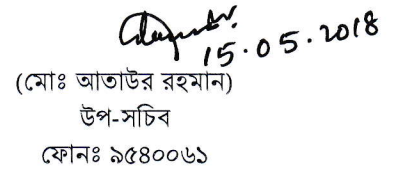 15.05.2018
(মোঃ আতাউর রহমান)
উপ-সচিব
ফোনঃ ৯৫৪০০৬১